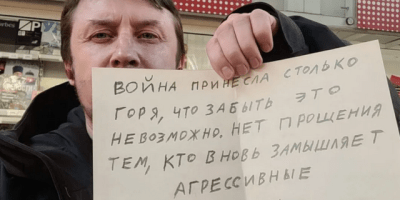 ВОЙНА ПРИНЕСЛА СТОЛЬКО
ГОРЯ, ЧТО ЗАБЫТЬ ЭТО
НЕВОЗМОЖНО. НЕТ ПРОЩЕНИЯ
ТЕМ, КТО ВНОВЬ ЗАМЫШЛЯЕТ
АГРЕССИВНЫЕ